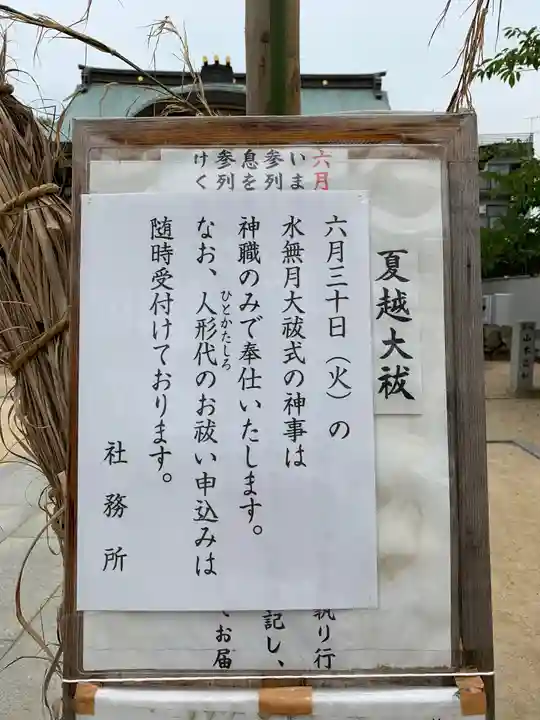 夏越大祓
六月三十日（火）の
水無月大祓式の神事は
神職のみで奉仕いたします。
なお、人形代のお祓い申込みは
ひとかたしろ
随時受付けております。
社務所
六月
いま
参列
息を
参列
けく
執り行
記し、
てお届